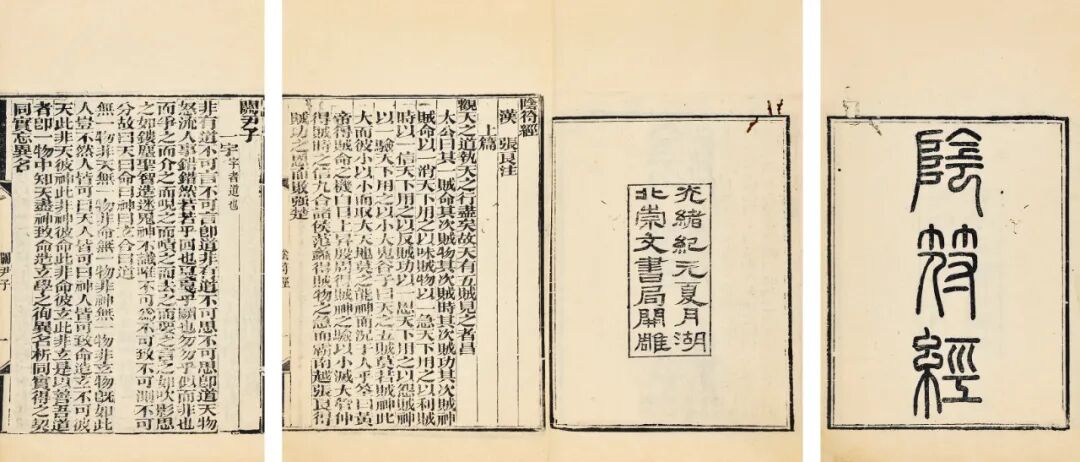 陰符經
光緒紀元夏月湖
北崇文書局開雕
陰符經
漢 張良注
上篇
觀天之道執天之行盡矣故天有五賊見之者昌
太公曰其一賊命其次賊物其次賊時其次賊功其次賊神
賊命以一消天下用之以味賊物以一急天下用之以利賊
時以一信天下用之以反賊功以一恩天下用之以怨賊神
以一驗天下用之以小大鬼谷子曰天之五賊莫若賊神此
大而彼小以小而取大天地莫之能神而況于人乎筌曰黃
帝得賊命之機白日上昇殷周得賊神之驗以小滅大管仲
得賊時之信九合諸侯范蠡得賊物之急而霸南越張良得
賊功之恩而敗強楚
陰符經
關尹子
一宇 宇者道也
非有道不可言不可言即道非有道不可思不可思即道天物
怒流人事錯錯然若若乎回也戛戛乎鬬也勿勿乎似而非也
而爭之而介之而哯之而嘖之而去之而要之言之如吹影思
之如鏤塵聖智造迷鬼神不識唯不可為不可致不可測不可
分故曰天曰命曰神曰玄合曰道
無一物非天無一物非命無一物非神無一物非玄物既如此
人豈不然人皆可曰天人皆可曰神人皆可致命造玄不可彼
天此非天彼神此非神彼命此非命彼玄此非玄是以善吾道
者即一物中知天盡神致命造玄學之徇異名析同實得之契
同實忘異名
關尹子